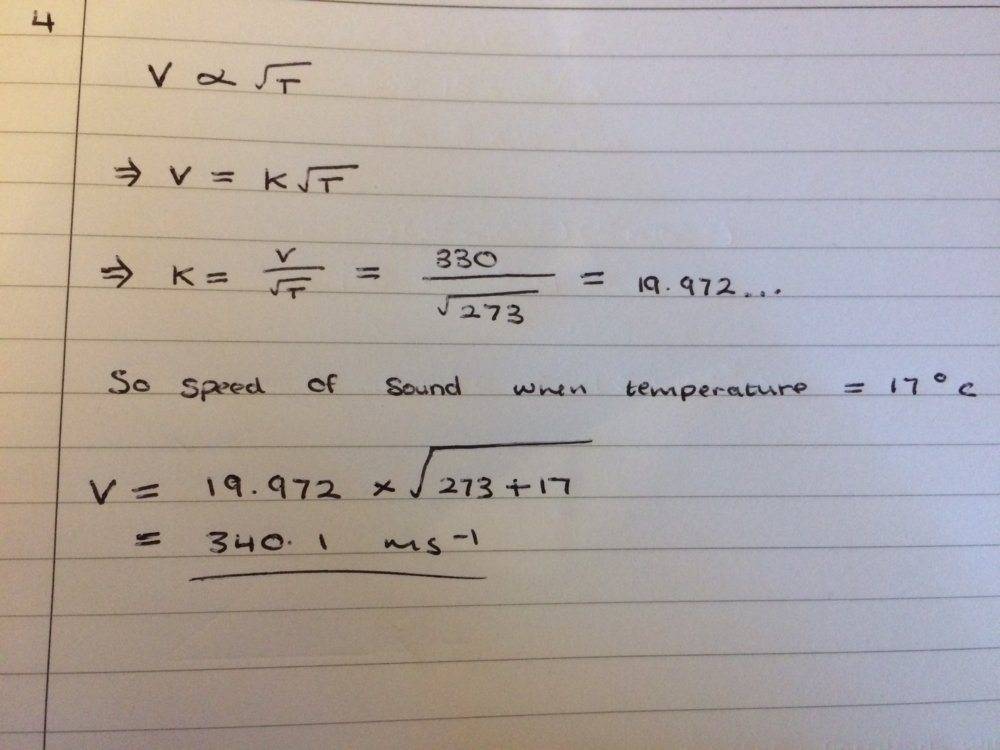 4
V ∝ √T
⇒ V = K√T
⇒ K = V/√T = 330/√273 = 19.972...
So speed of sound when temperature = 17°c
V = 19.972 × √273+17
= 340.1 ms⁻¹